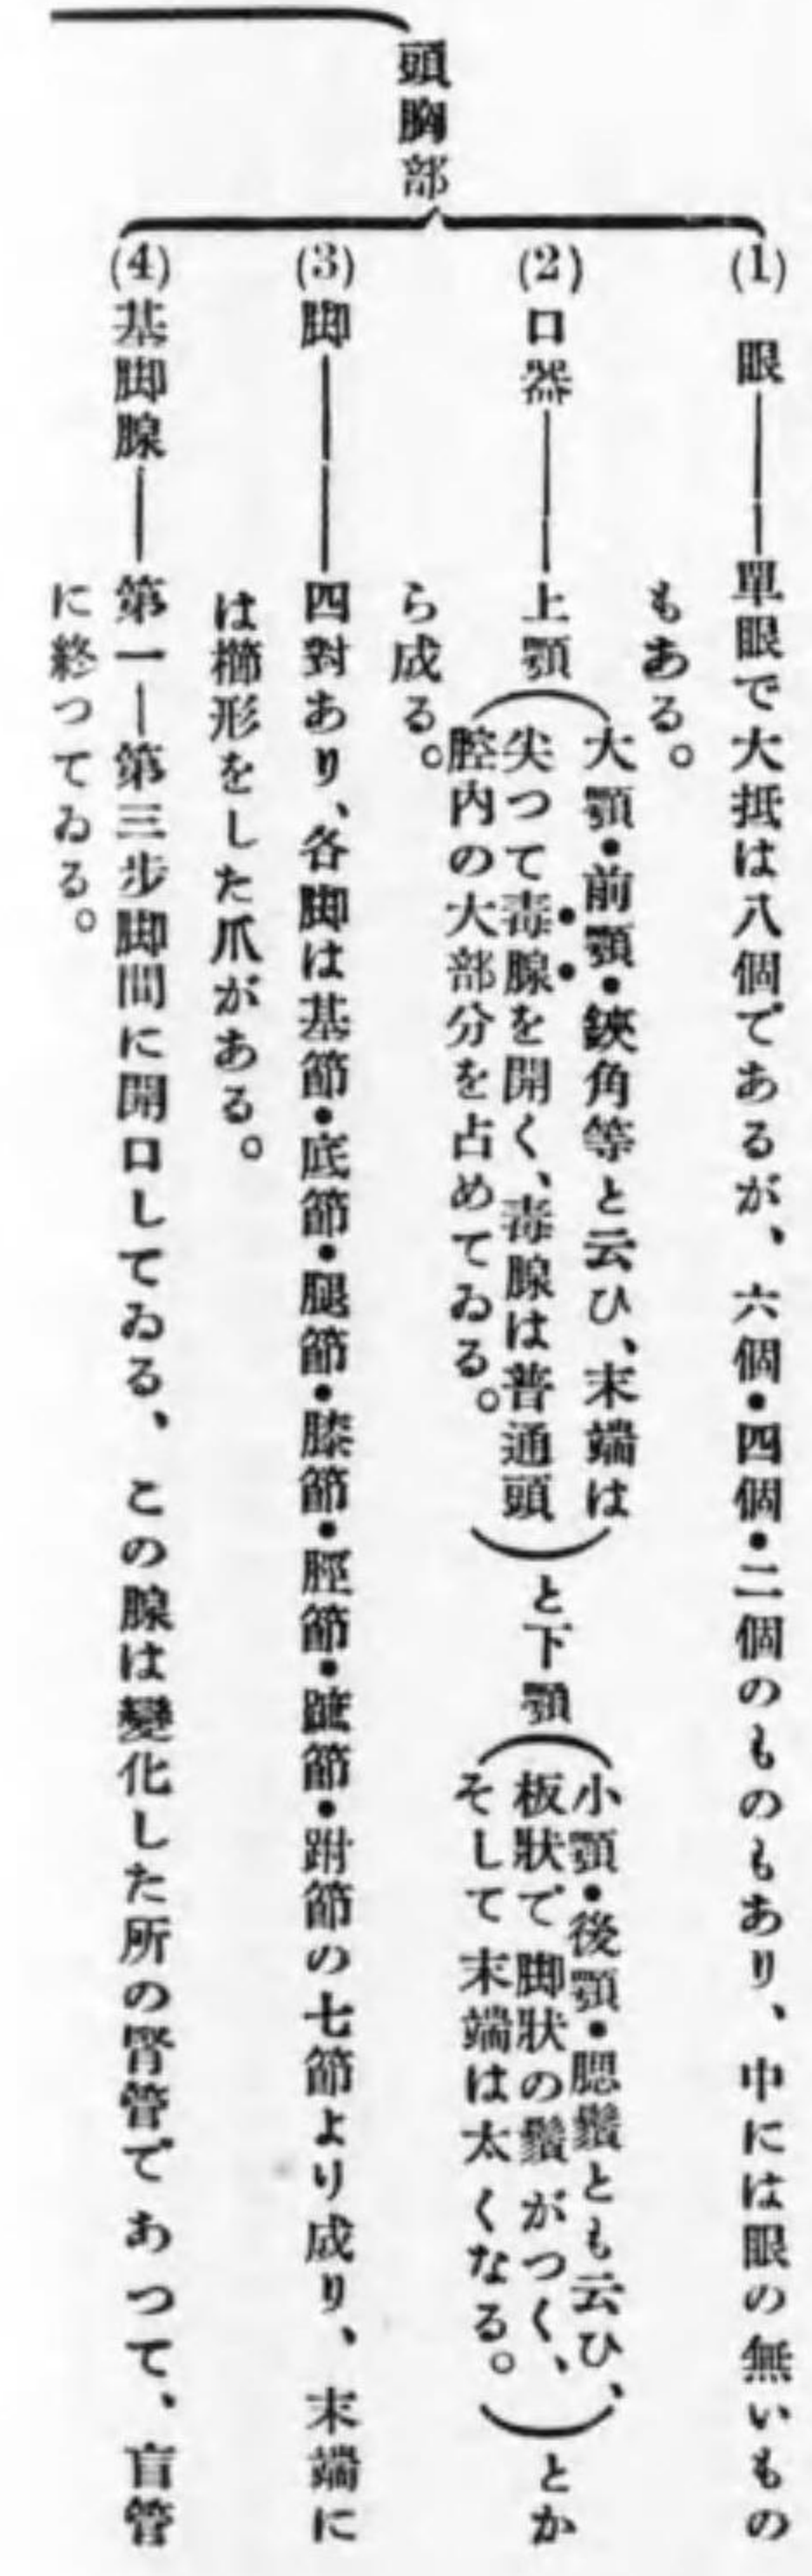 頭胸部
(1) 眼――單眼で大抵は八個であるが、六個・四個・二個のものもあり、中には眼の無いもの
もある。
(2) 口器――上顎(大顎・前顎・鋏角等と云ひ、末端は
尖つて毒腺を開く、毒腺は普通頭
腔内の大部分を占めてゐる。)と下顎(小顎・後顎・腮鬚とも云ひ、
板狀で脚狀の鬚がつく、
そして末端は太くなる。)とか
ら成る。
(3) 脚――四對あり、各脚は基節・底節・腿節・膝節・脛節・蹠節・跗節の七節より成り、末端に
は櫛形をした爪がある。
(4) 基脚腺――第一―第三步脚間に開口してゐる、この腺は變化した所の腎管であつて、盲管
に終つてゐる。